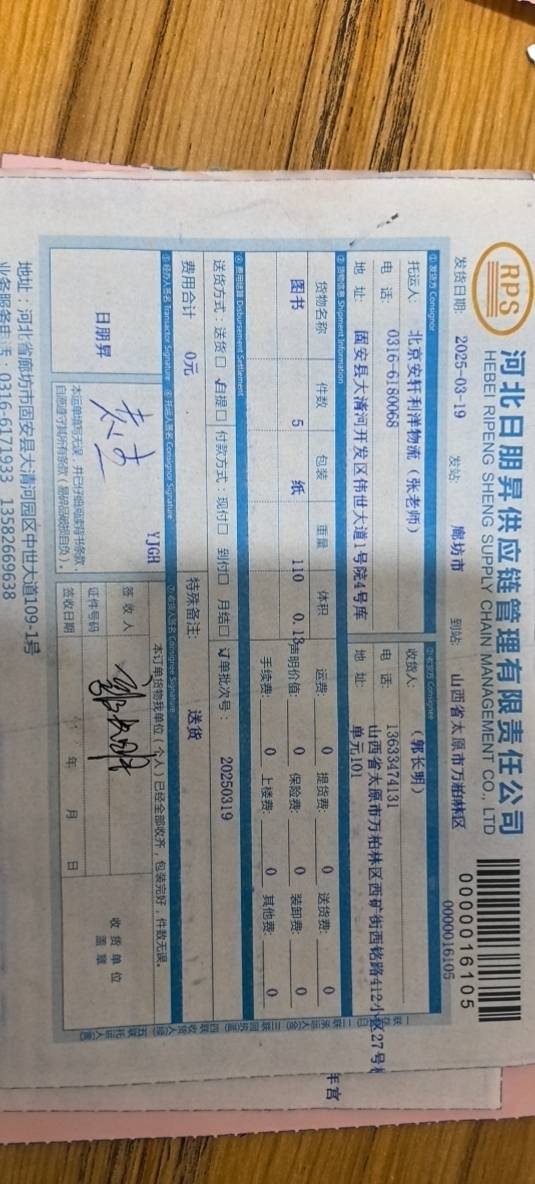 RPS
河北日朋昇供应链管理有限责任公司
HEBEI RIPENG SHENG SUPPLY CHAIN MANAGEMENT CO., LTD
0000016105
0000016105
发货日期: 2025-03-19 发站: 廊坊市 到站: 山西省太原市万柏林区
①发货方 Consignor
②收货方 Consignee
托运人: 北京安轩利洋物流（张老师）
收货人: （郭长明）
电 话: 0316-6180068
电 话: 13633474131
地 址: 固安县大清河开发区伟世大道1号院4号库
地 址: 山西省太原市万柏林区西矿街西铭路412小区27号
单元101
③货物信息 Shipment Information
货物名称 件数 包装 重量 体积
图书 5 纸 110 0.13
运费: 0 提货费: 0 送货费: 0
声明价值: 0 保险费: 0 装卸费: 0
手续费: 0 上楼费: 0 其他费: 0
④费用结算 Disbursement Settlement
送货方式: 送货□ 自提□ 付款方式: 现付□ 到付□ 月结□ 订单批次号: 20250319
费用合计 0元 特殊备注: 送货
⑤经办人签名 Transactor Signature
⑥托运人签名 Consignor Signature
⑦收货人签名 Consignee Signature
日朋昇
YJGH
本订单货物我单位（个人）已经全部收齐，包装完好，件数无误。
签收人 郭长明
证件号码
签收日期 年 月 日
收货单位
盖章
本运单填写无误，并已仔细阅读背书条款，
自愿遵守其所有条款（易碎品破损自负）。
地址：河北省廊坊市固安县大清河园区中世大道109-1号
业务服务电话：0316-6171933 13582669638
年宫